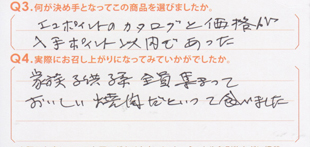 Q3.何が決め手となってこの商品を選びましたか。
エコポイントのカタログと価格が
入手ポイント以内であった
Q4.実際にお召し上がりになってみていかがでしたか。
家族子供孫全員集まって
おいしい焼肉だといって食いました